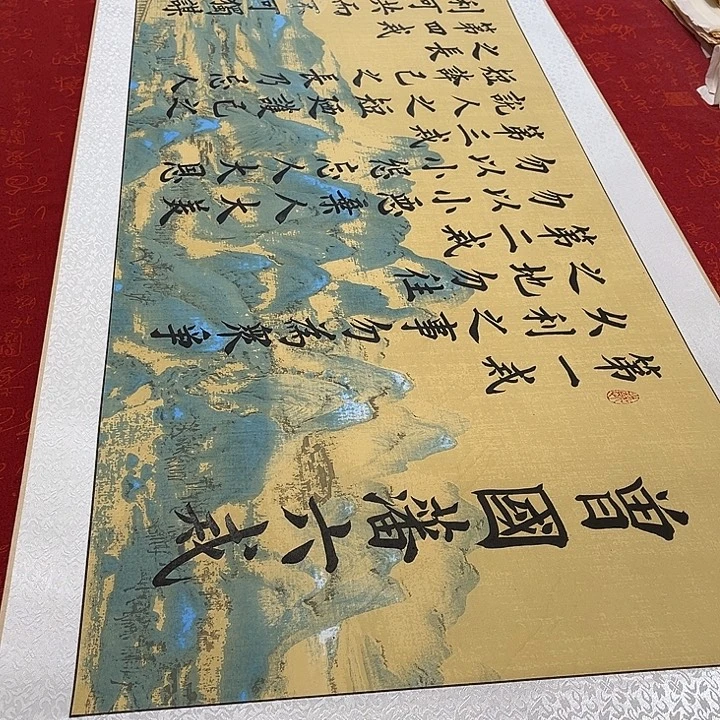 曾國藩六戒
第一戒
久利之事勿為眾爭
之地勿往
第二戒
勿以小惡棄人大美
勿以小怨忘人大恩
第三戒
說人之短便護己之
短誇己之長乃忌人
之長
第四戒
利可共而不可獨